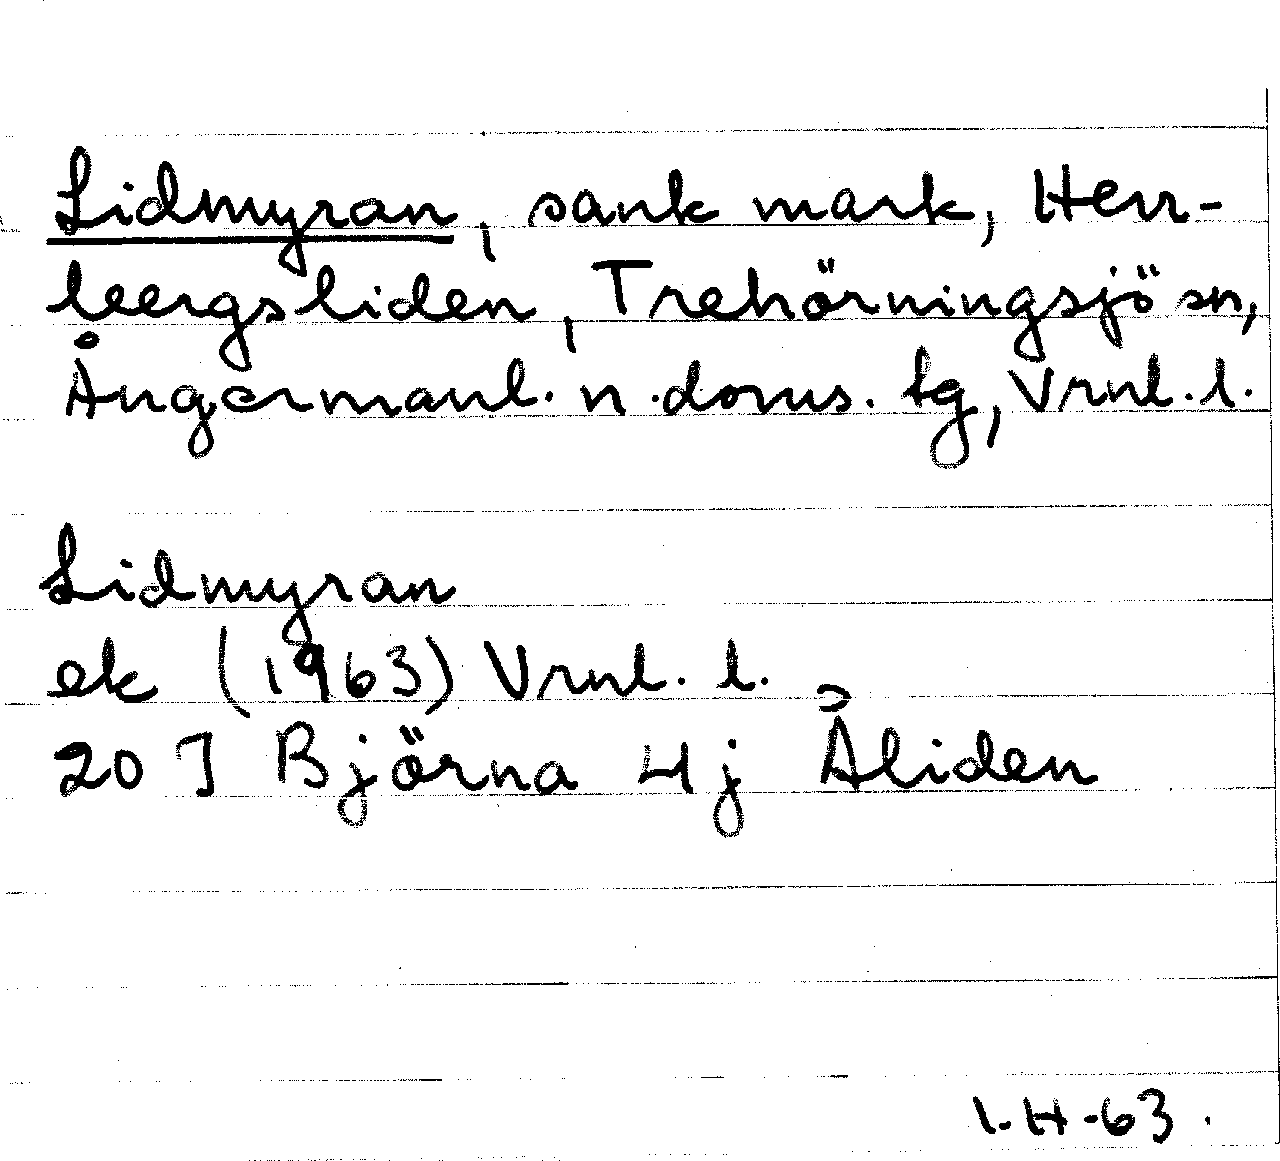 Lidmyran, sank mark, Herr-
bergsliden, Trehörningsjö sn,
Ångermanl. n. doms. tg, Vrnl. l.
Lidmyran
ek (1963) Vrnl. l.
20 J Björna 4j Åliden
I.H-63.